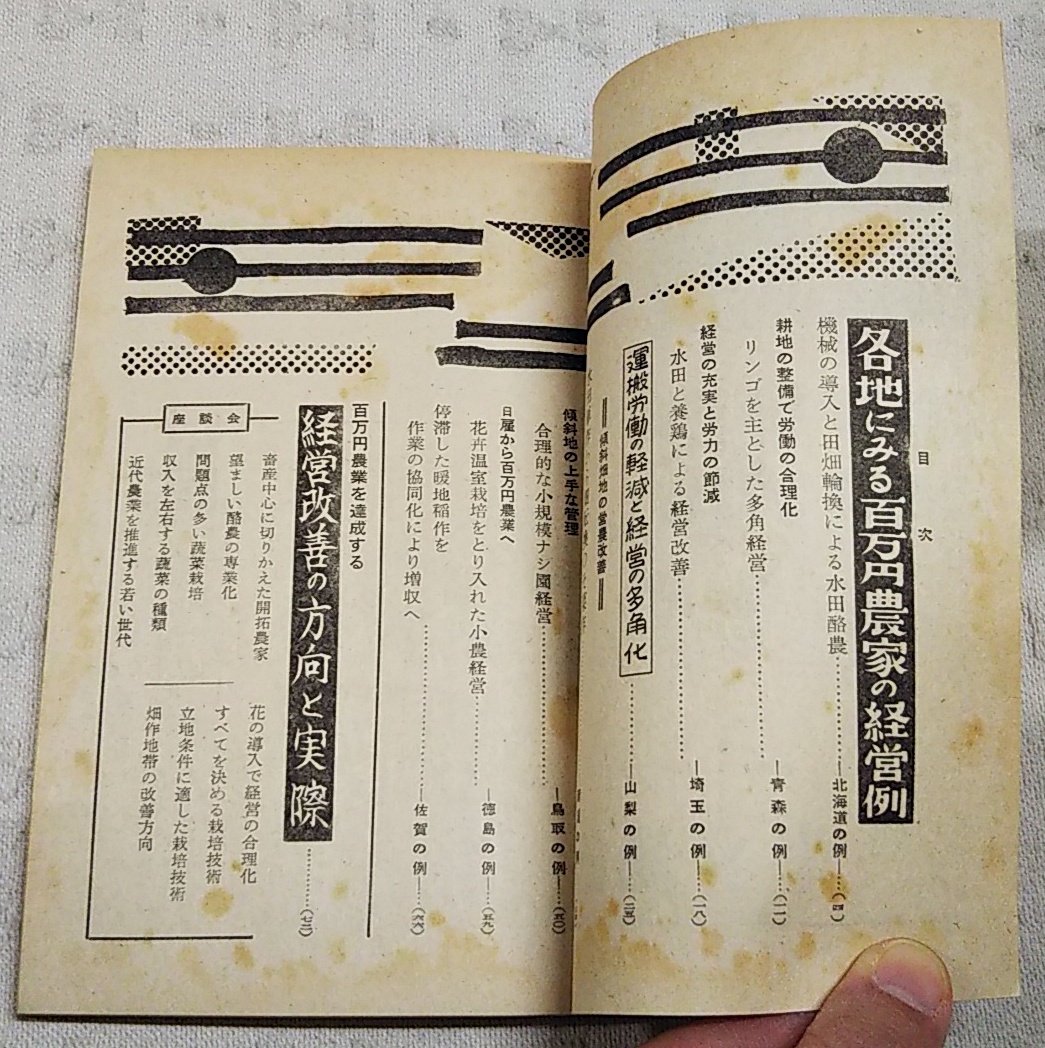 目次
各地にみる百万円農家の経営例
機械の導入と田畑輪換による水田酪農
―北海道の例―……(四)
耕地の整備で労働の合理化
リンゴを主とした多角経営……
―青森の例―……(一一)
経営の充実と労力の節減
水田と養鶏による経営改善……
―埼玉の例―……(一八)
運搬労働の軽減と経営の多角化……
―山梨の例―……(二五)
＝傾斜畑地の営農改善＝
傾斜地の上手な管理
合理的な小規模ナシ園経営……
―鳥取の例―……(五〇)
日雇から百万円農業へ
花卉温室栽培をとり入れた小農経営……
―徳島の例―……(五九)
停滞した暖地稲作を
作業の協同化により増収へ……
―佐賀の例―……(六六)
百万円農業を達成する
経営改善の方向と実際……(七二)
座談会
畜産中心に切りかえた開拓農家
望ましい酪農の専業化
問題点の多い蔬菜栽培
収入を左右する蔬菜の種類
近代農業を推進する若い世代
花の導入で経営の合理化
すべてを決める栽培技術
立地条件に適した栽培技術
畑作地帯の改善方向